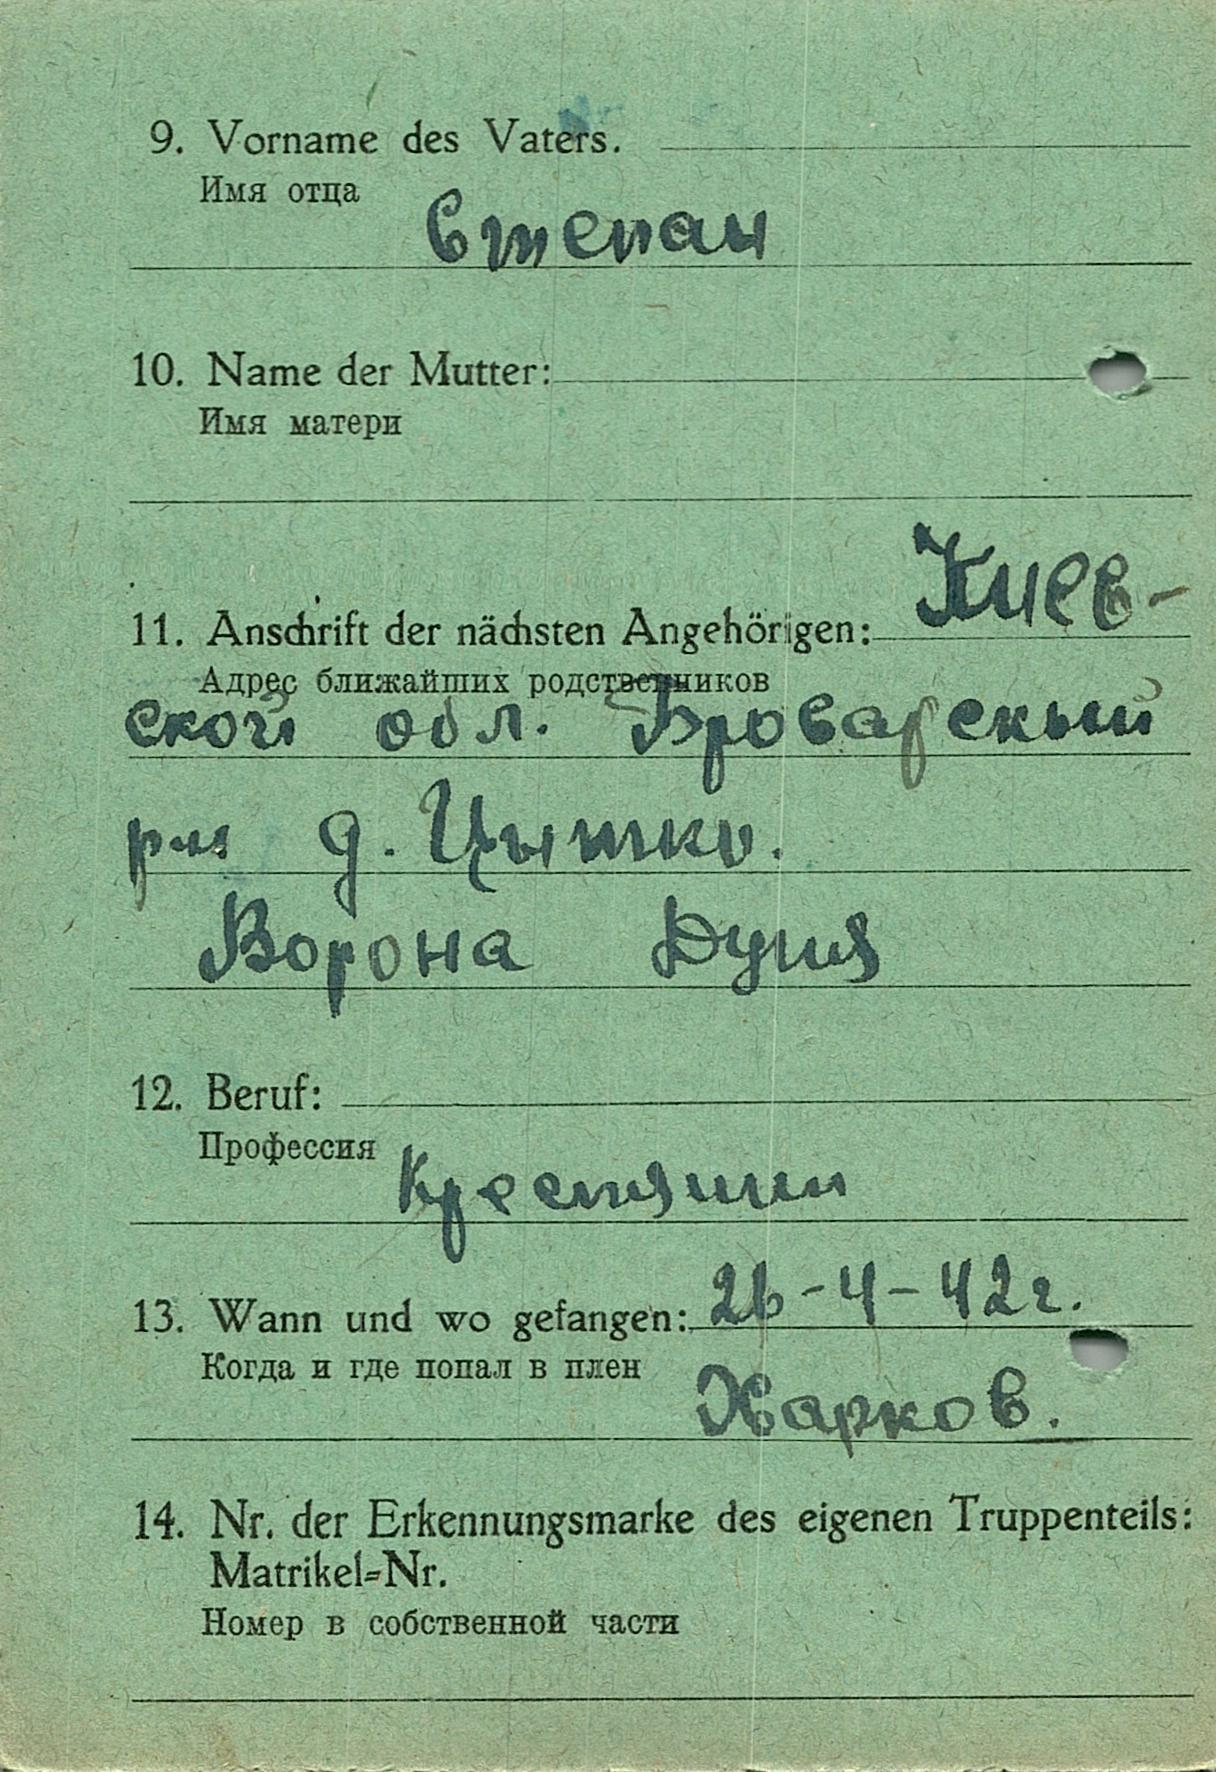 9. Vorname des Vaters.
Имя отца
Степан
10. Name der Mutter:
Имя матери
Киев-
11. Anschrift der nächsten Angehörigen:
Адрес ближайших родственников
ской обл. Броварскый
р-н д. Цытко.
Ворона Дуня
12. Beruf:
Профессия
Крестянин
13. Wann und wo gefangen: 26-4-42г.
Когда и где попал в плен
Харков.
14. Nr. der Erkennungsmarke des eigenen Truppenteils:
Matrikel-Nr.
Номер в собственной части